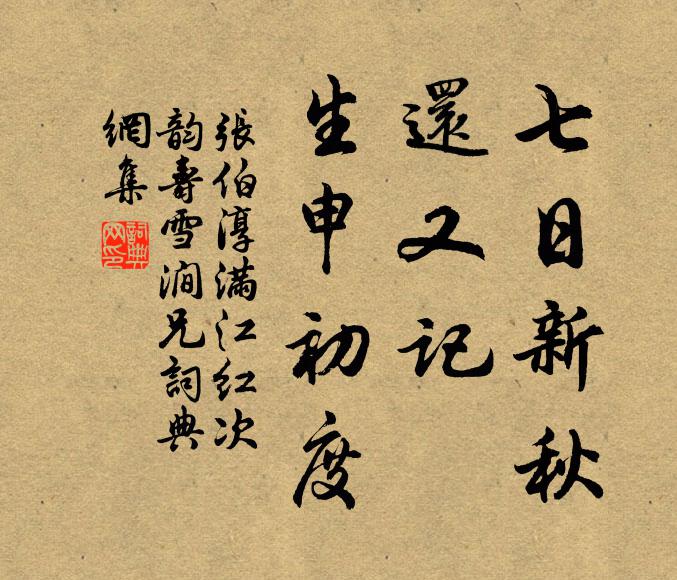 七日新秋
還又記
生申初度
張伯淳滿江红次
韵壽雪澗兄詞典
網集
詞典
网印